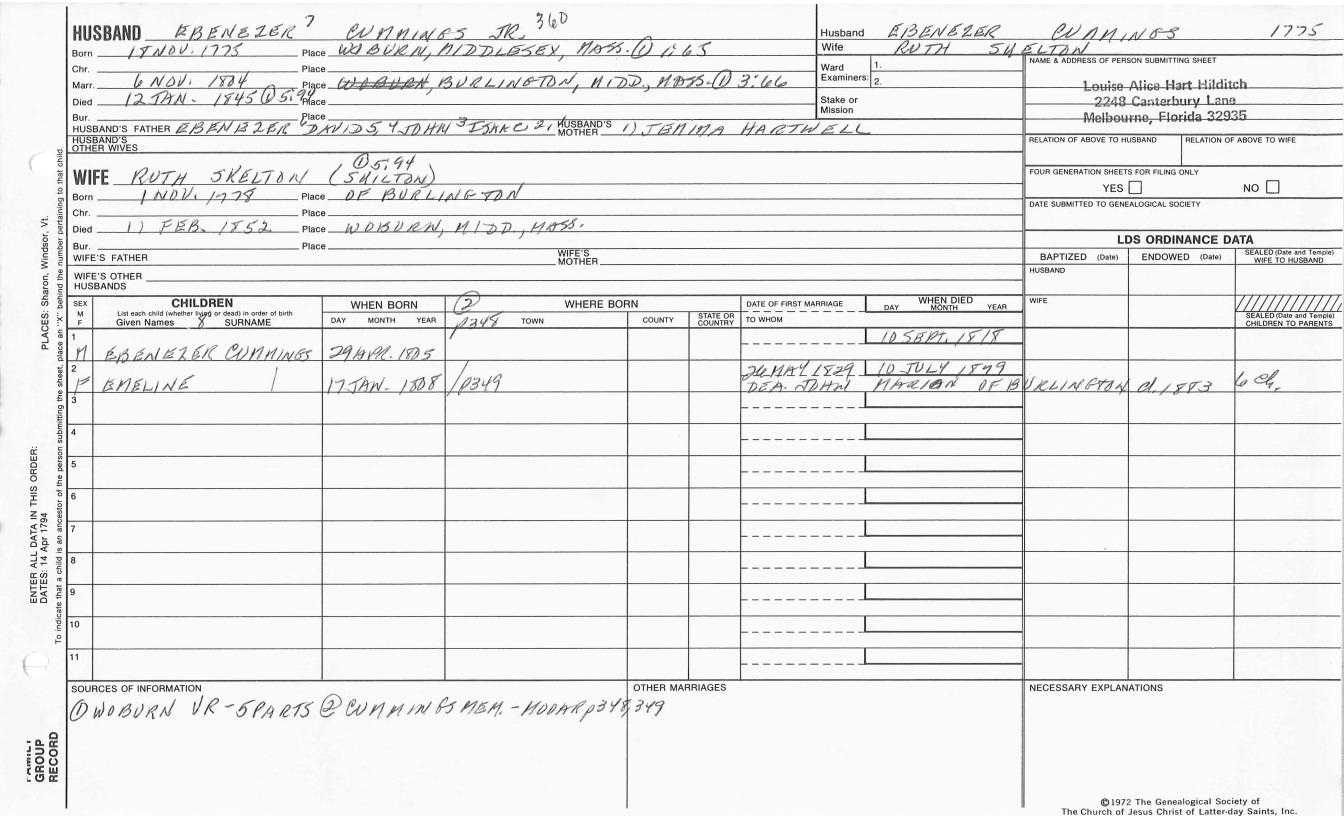 HUSBAND EBENEZER 7 CUMMINGS JR. 360
Born 18 NOV. 1775 Place WOBURN, MIDDLESEX, MASS. ① 1:65
Chr. Place
Marr. 6 NOV. 1804 Place WOBURN, BURLINGTON, MIDD., MASS. ① 3:66
Died 12 JAN. 1845 ① 5:94 Place
Bur. Place
HUSBAND'S FATHER EBENEZER 6 DAVID 5, 4 JOHN 3 ISAAC 2, 1 HUSBAND'S MOTHER 1) JEMIMA HARTWELL
HUSBAND'S OTHER WIVES
① 5:94
WIFE RUTH SKELTON (SKILTON)
Born 1 NOV. 1778 Place OF BURLINGTON
Chr. Place
Died 11 FEB. 1852 Place WOBURN, MIDD., MASS.
Bur. Place
WIFE'S FATHER WIFE'S MOTHER
WIFE'S OTHER HUSBANDS
Husband EBENEZER CUMMINGS 1775
Wife RUTH SKELTON
Ward Examiners: 1.
2.
Stake or Mission
NAME & ADDRESS OF PERSON SUBMITTING SHEET
Louise Alice Hart Hilditch
2248 Canterbury Lane
Melbourne, Florida 32935
RELATION OF ABOVE TO HUSBAND RELATION OF ABOVE TO WIFE
FOUR GENERATION SHEETS FOR FILING ONLY
YES NO
DATE SUBMITTED TO GENEALOGICAL SOCIETY
LDS ORDINANCE DATA
BAPTIZED (Date) ENDOWED (Date) SEALED (Date and Temple) WIFE TO HUSBAND
HUSBAND
WIFE
SEALED (Date and Temple) CHILDREN TO PARENTS
SEX M F CHILDREN WHEN BORN ② WHERE BORN DATE OF FIRST MARRIAGE WHEN DIED
List each child (whether living or dead) in order of birth
Given Names 8 SURNAME DAY MONTH YEAR p348 TOWN COUNTY STATE OR COUNTRY TO WHOM DAY MONTH YEAR
1 10 SEPT. 1818
M EBENEZER CUMMINGS 29 APR. 1805
2 26 MAY 1829 10 JULY 1899
F EMELINE 17 JAN. 1808 p349 DEA. JOHN MARION OF BURLINGTON d. 1883 6 ch.
3
4
5
6
7
8
9
10
11
SOURCES OF INFORMATION OTHER MARRIAGES NECESSARY EXPLANATIONS
① WOBURN VR - 5 PARTS ② CUMMINGS MEM. - MOOAR p348, 349
©1972 The Genealogical Society of
The Church of Jesus Christ of Latter-day Saints, Inc.
FAMILY GROUP RECORD
ENTER ALL DATA IN THIS ORDER:
DATES: 14 Apr 1794 PLACES: Sharon, Windsor, Vt.
To indicate that a child is an ancestor of the person submitting the sheet, place an "X" behind the number pertaining to that child.